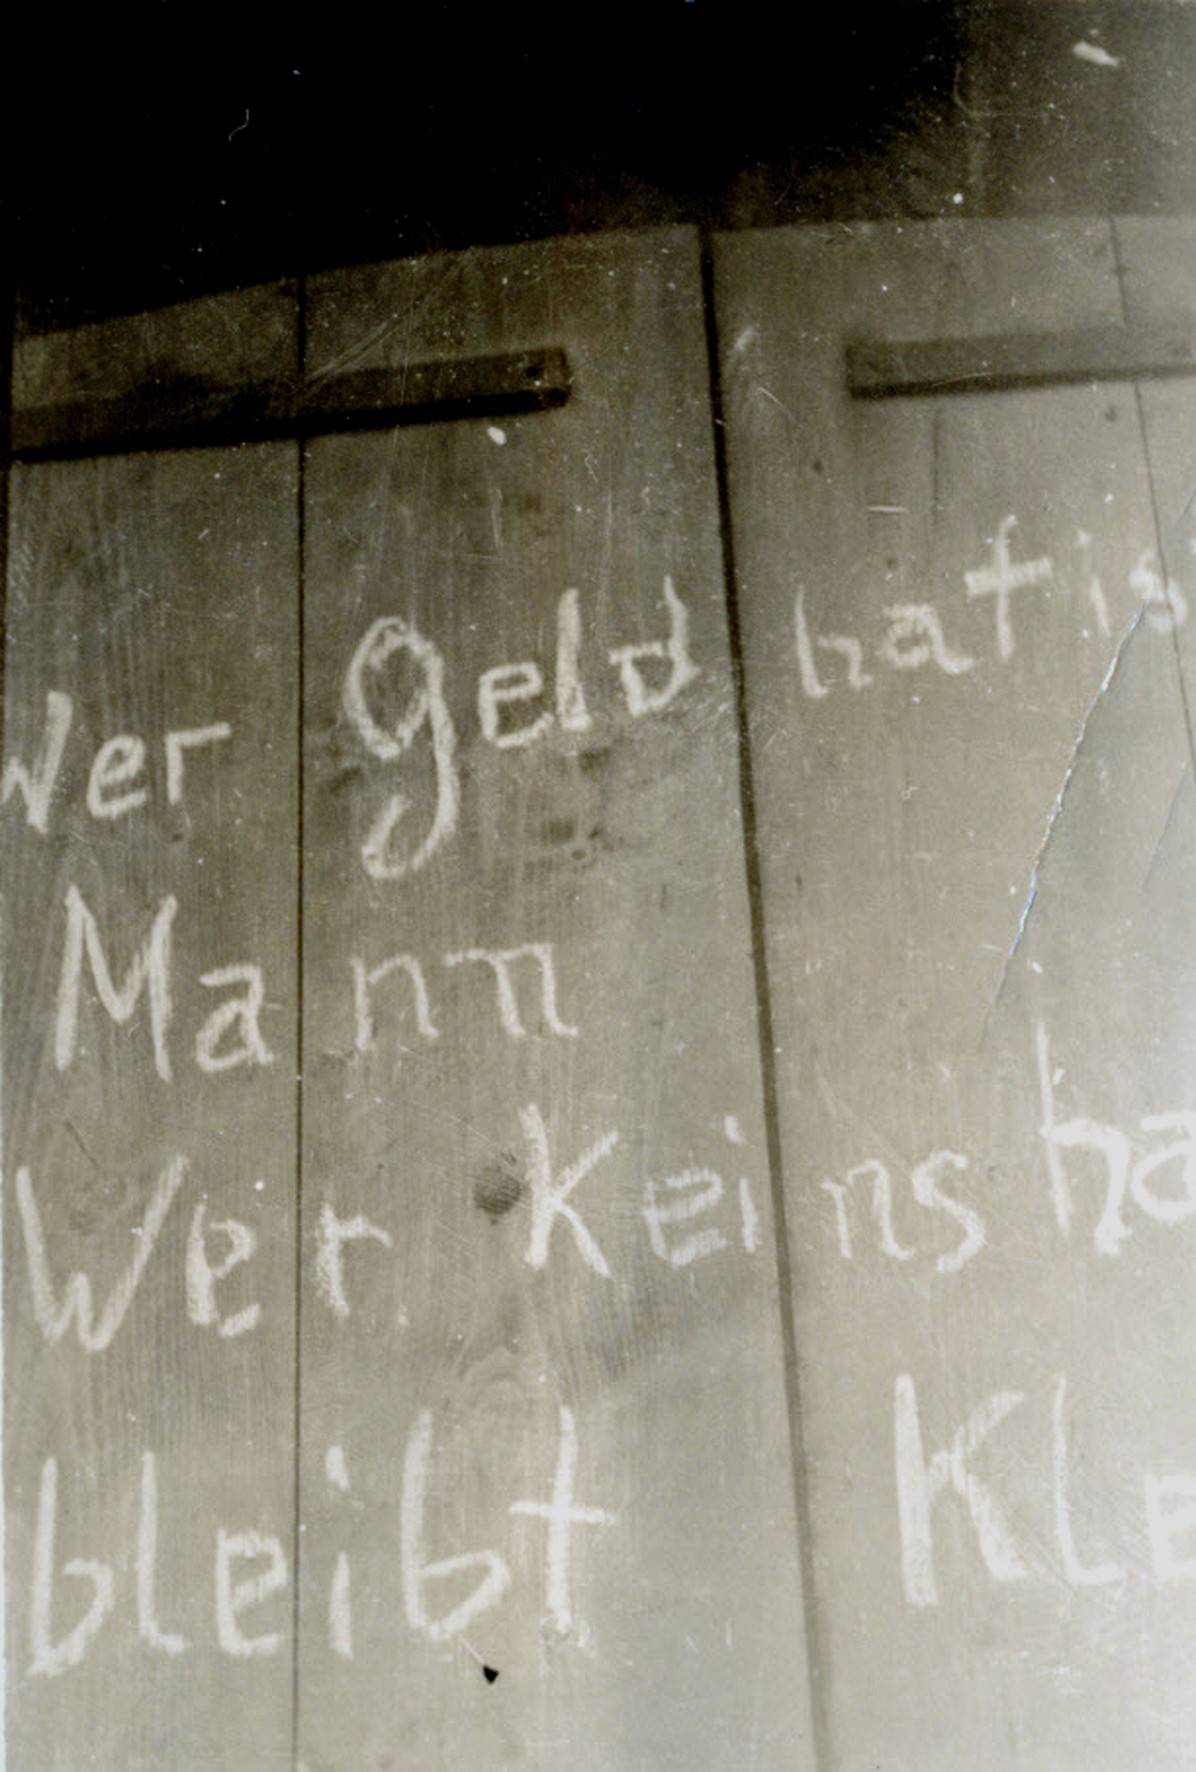 Wer Geld hat is
Mann
Wer Keins ha
bleibt Kle